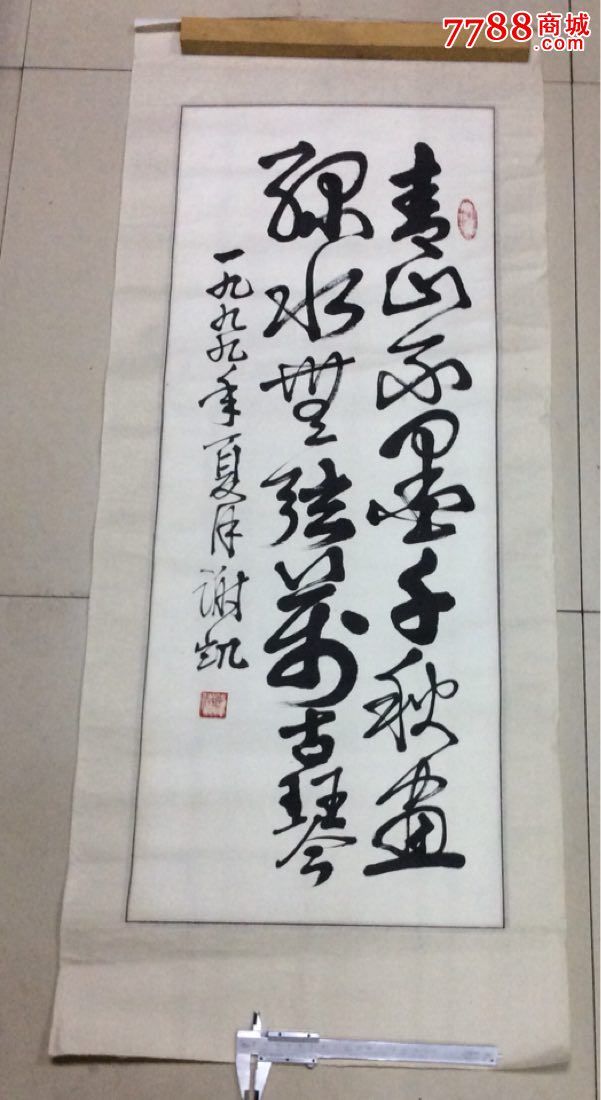 7788商城
.com
青山不墨千秋畫
綠水無弦萬古琴
一九九九年夏月謝凯